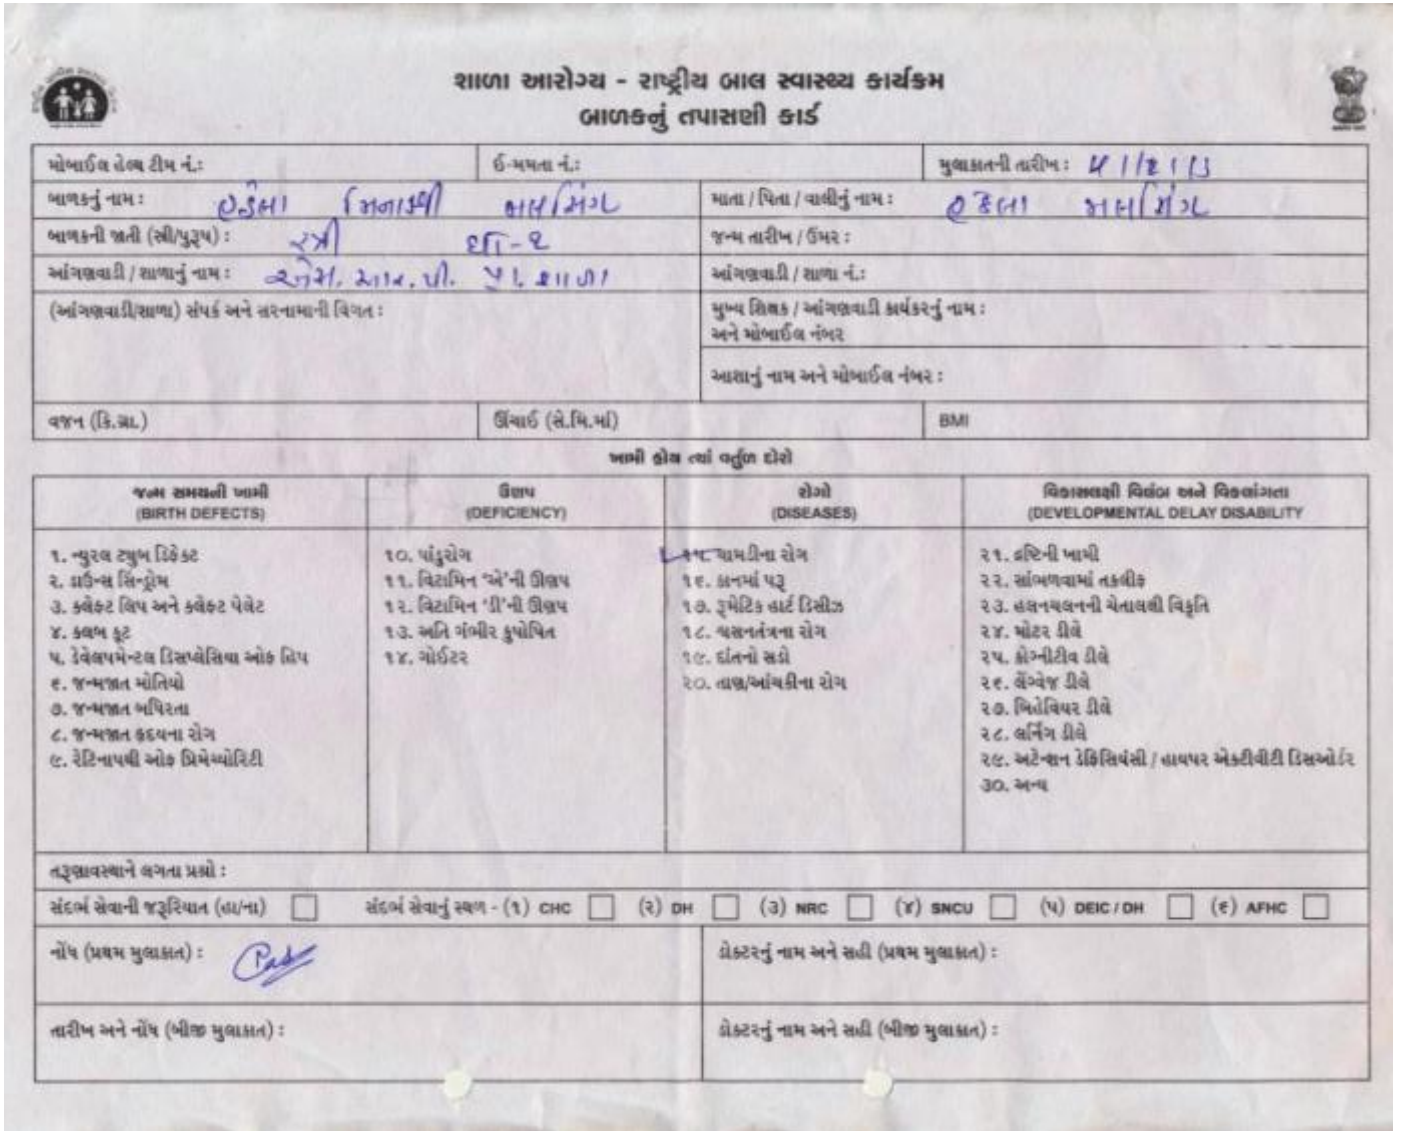 શાળા આરોગ્ય - રાષ્ટ્રીય બાલ સ્વાસ્થ્ય કાર્યક્રમ
બાળકનું તપાસણી કાર્ડ
મોબાઈલ હેલ્થ ટીમ નં.: ઈ-મમતા નં.: મુલાકાતની તારીખ :
બાળકનું નામ : માતા / પિતા / વાલીનું નામ :
બાળકની જાતી (સ્ત્રી/પુરૂષ) : સ્ત્રી ધો-૨ જન્મ તારીખ / ઉંમર :
આંગણવાડી / શાળાનું નામ : એમ. આર. પી. પ્રા. શાળા આંગણવાડી / શાળા નં.:
(આંગણવાડી/શાળા) સંપર્ક અને સરનામાની વિગત : મુખ્ય શિક્ષક / આંગણવાડી કાર્યકરનું નામ :
અને મોબાઈલ નંબર
આશાનું નામ અને મોબાઈલ નંબર :
વજન (કિ.ગ્રા.) ઊંચાઈ (સે.મિ.માં) BMI
ખામી હોય ત્યાં વર્તુળ દોરો
જન્મ સમયની ખામી ઉણપ રોગો વિકાસલક્ષી વિલંબ અને વિકલાંગતા
(BIRTH DEFECTS) (DEFICIENCY) (DISEASES) (DEVELOPMENTAL DELAY DISABILITY
૧. ન્યુરલ ટ્યુબ ડિફેક્ટ ૧૦. પાંડુરોગ ૧૫. ચામડીના રોગ ૨૧. દ્રષ્ટિની ખામી
૨. ડાઉન્સ સિન્ડ્રોમ ૧૧. વિટામિન ‘એ’ની ઊણપ ૧૬. કાનમાં પરૂ ૨૨. સાંભળવામાં તકલીફ
૩. ક્લેફ્ટ લિપ અને ક્લેફ્ટ પેલેટ ૧૨. વિટામિન ‘ડી’ની ઊણપ ૧૭. રૂમેટિક હાર્ટ ડિસીઝ ૨૩. હલનચલનની ચેતાલક્ષી વિકૃતિ
૪. ક્લબ ફૂટ ૧૩. અતિ ગંભીર કુપોષિત ૧૮. શ્વસનતંત્રના રોગ ૨૪. મોટર ડીલે
૫. ડેવેલપમેન્ટલ ડિસપ્લેસિયા ઓફ હિપ ૧૪. ગોઈટર ૧૯. દાંતનો સડો ૨૫. કોગ્નીટીવ ડીલે
૬. જન્મજાત મોતિયો ૨૦. તાણ/આંચકીના રોગ ૨૬. લેંગ્વેજ ડીલે
૭. જન્મજાત બધિરતા ૨૭. બિહેવિયર ડીલે
૮. જન્મજાત હ્રદયના રોગ ૨૮. લર્નિંગ ડીલે
૯. રેટિનાપથી ઓફ પ્રિમેચ્યોરિટી ૨૯. અટેન્શન ડેફિસિયંસી / હાયપર એક્ટીવીટી ડિસઓર્ડર
૩૦. અન્ય
તરૂણાવસ્થાને લગતા પ્રશ્નો :
સંદર્ભ સેવાની જરૂરિયાત (હા/ના) સંદર્ભ સેવાનું સ્થળ - (૧) CHC (૨) DH (૩) NRC (૪) SNCU (૫) DEIC / DH (૬) AFHC
નોંધ (પ્રથમ મુલાકાત) : ડોક્ટરનું નામ અને સહી (પ્રથમ મુલાકાત) :
તારીખ અને નોંધ (બીજી મુલાકાત) : ડોક્ટરનું નામ અને સહી (બીજી મુલાકાત) :